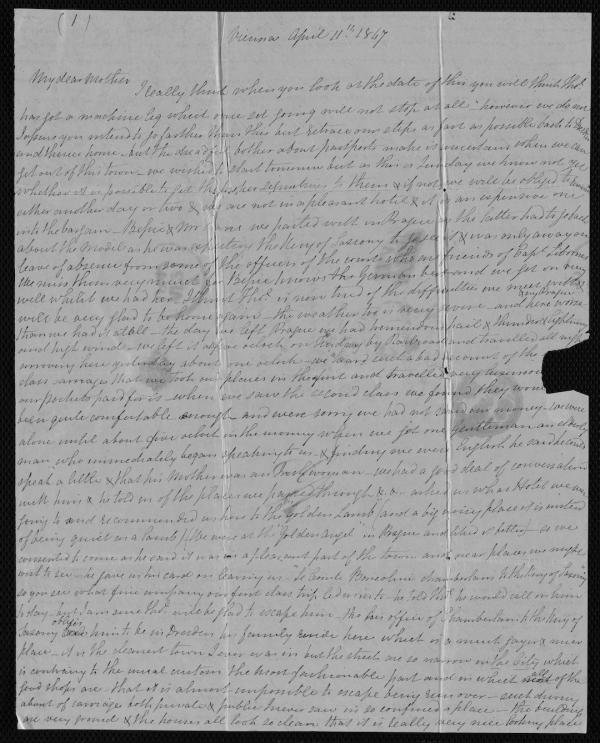 (1)
Vienna April 11th 1847
My dear Mother
I really think when you look at the date of this you will think Thos.
has got a machine leg which once set going will not stop at all however we do not
I assure you intend to go farther than this but retrace our steps as fast as possible back to
and thence home - but the dreadful bother about passports make is uncertain when we can
get out of this town - we wished to start tomorrow but as this is Sunday we know not yet
whether it is possible to get the proper signatures to them & if not we will be obliged to
either another day or two & we are not in a pleasant hotel & it is an expensive one
into the bargain - Bessie & Mr we parted with in Prague as the latter had to go back
about the Model as he was expecting the King of Saxony to see it & was only away on
leave of absence from some of the officers of the court who are friends of Capt.
We miss them very much for Bessie knows the German best and we got on very
well whilst we had her I think Thos. is now tired of the difficulties we meet with &
will be very glad to be home again - the weather too is very severe and here worse
than we had it at all - the day we left Prague we had tremendous hail & thunder & lightning
and high wind - we left it at o'clock on by Railroad and travelled all night
arriving here yesterday about one o'clock - we heard such a bad account of the
class carriages that we took our places in the first and travelled very
our pockets paid for it - when we saw the second class we found they would
been quite comfortable enough and were sorry we had not saved our money - we were
alone until about five o'clock in the morning when we got one gentleman an elderly
man who immediately began speaking to us & finding we were English he said he could
speak a little & that his Mother was an Irishwoman - we had a good deal of conversation
with him & he told us of the places we passed through &c &c - asked us what Hotel we were
going to and recommended us here to the Golden Lamb and a big noisy place it is instead
of being quiet as a lamb! (We were at the "Golden Angel" in Prague and liked it better) as we
consented to come as he said it was in a pleasant part of the town and near places we might
wish to see - he gave us his card on leaving us - "Le Comte chamberlain to the King of Saxony"
so you see what fine company our first class trip led us into - he told Thos. he would call on him
to day - but I am sure Thos. will be glad to escape him - tho his office of Chamberlain to the King of
Saxony obliges him to be in Dresden his family reside here which is a much gayer & nicer
place - it is the cleanest town I ever was in but the streets are so narrow in the City which
is contrary to the usual custom the most fashionable part and in which all most of the
good shops are - that it is almost impossible to escape being run over - such driving
about of carriages both private & public I never saw in so confined a place - the buildings
are very grand & the houses all look so clean that it is really very nice looking place